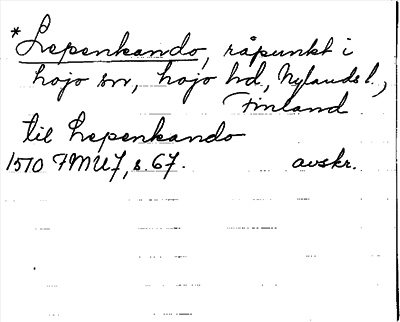 *Lepenkando, råpunkt i
hojo sn, hojo hd, Nylands l.,
Finland
til Lepenkando
1510 FMU7, s. 67. avskr.